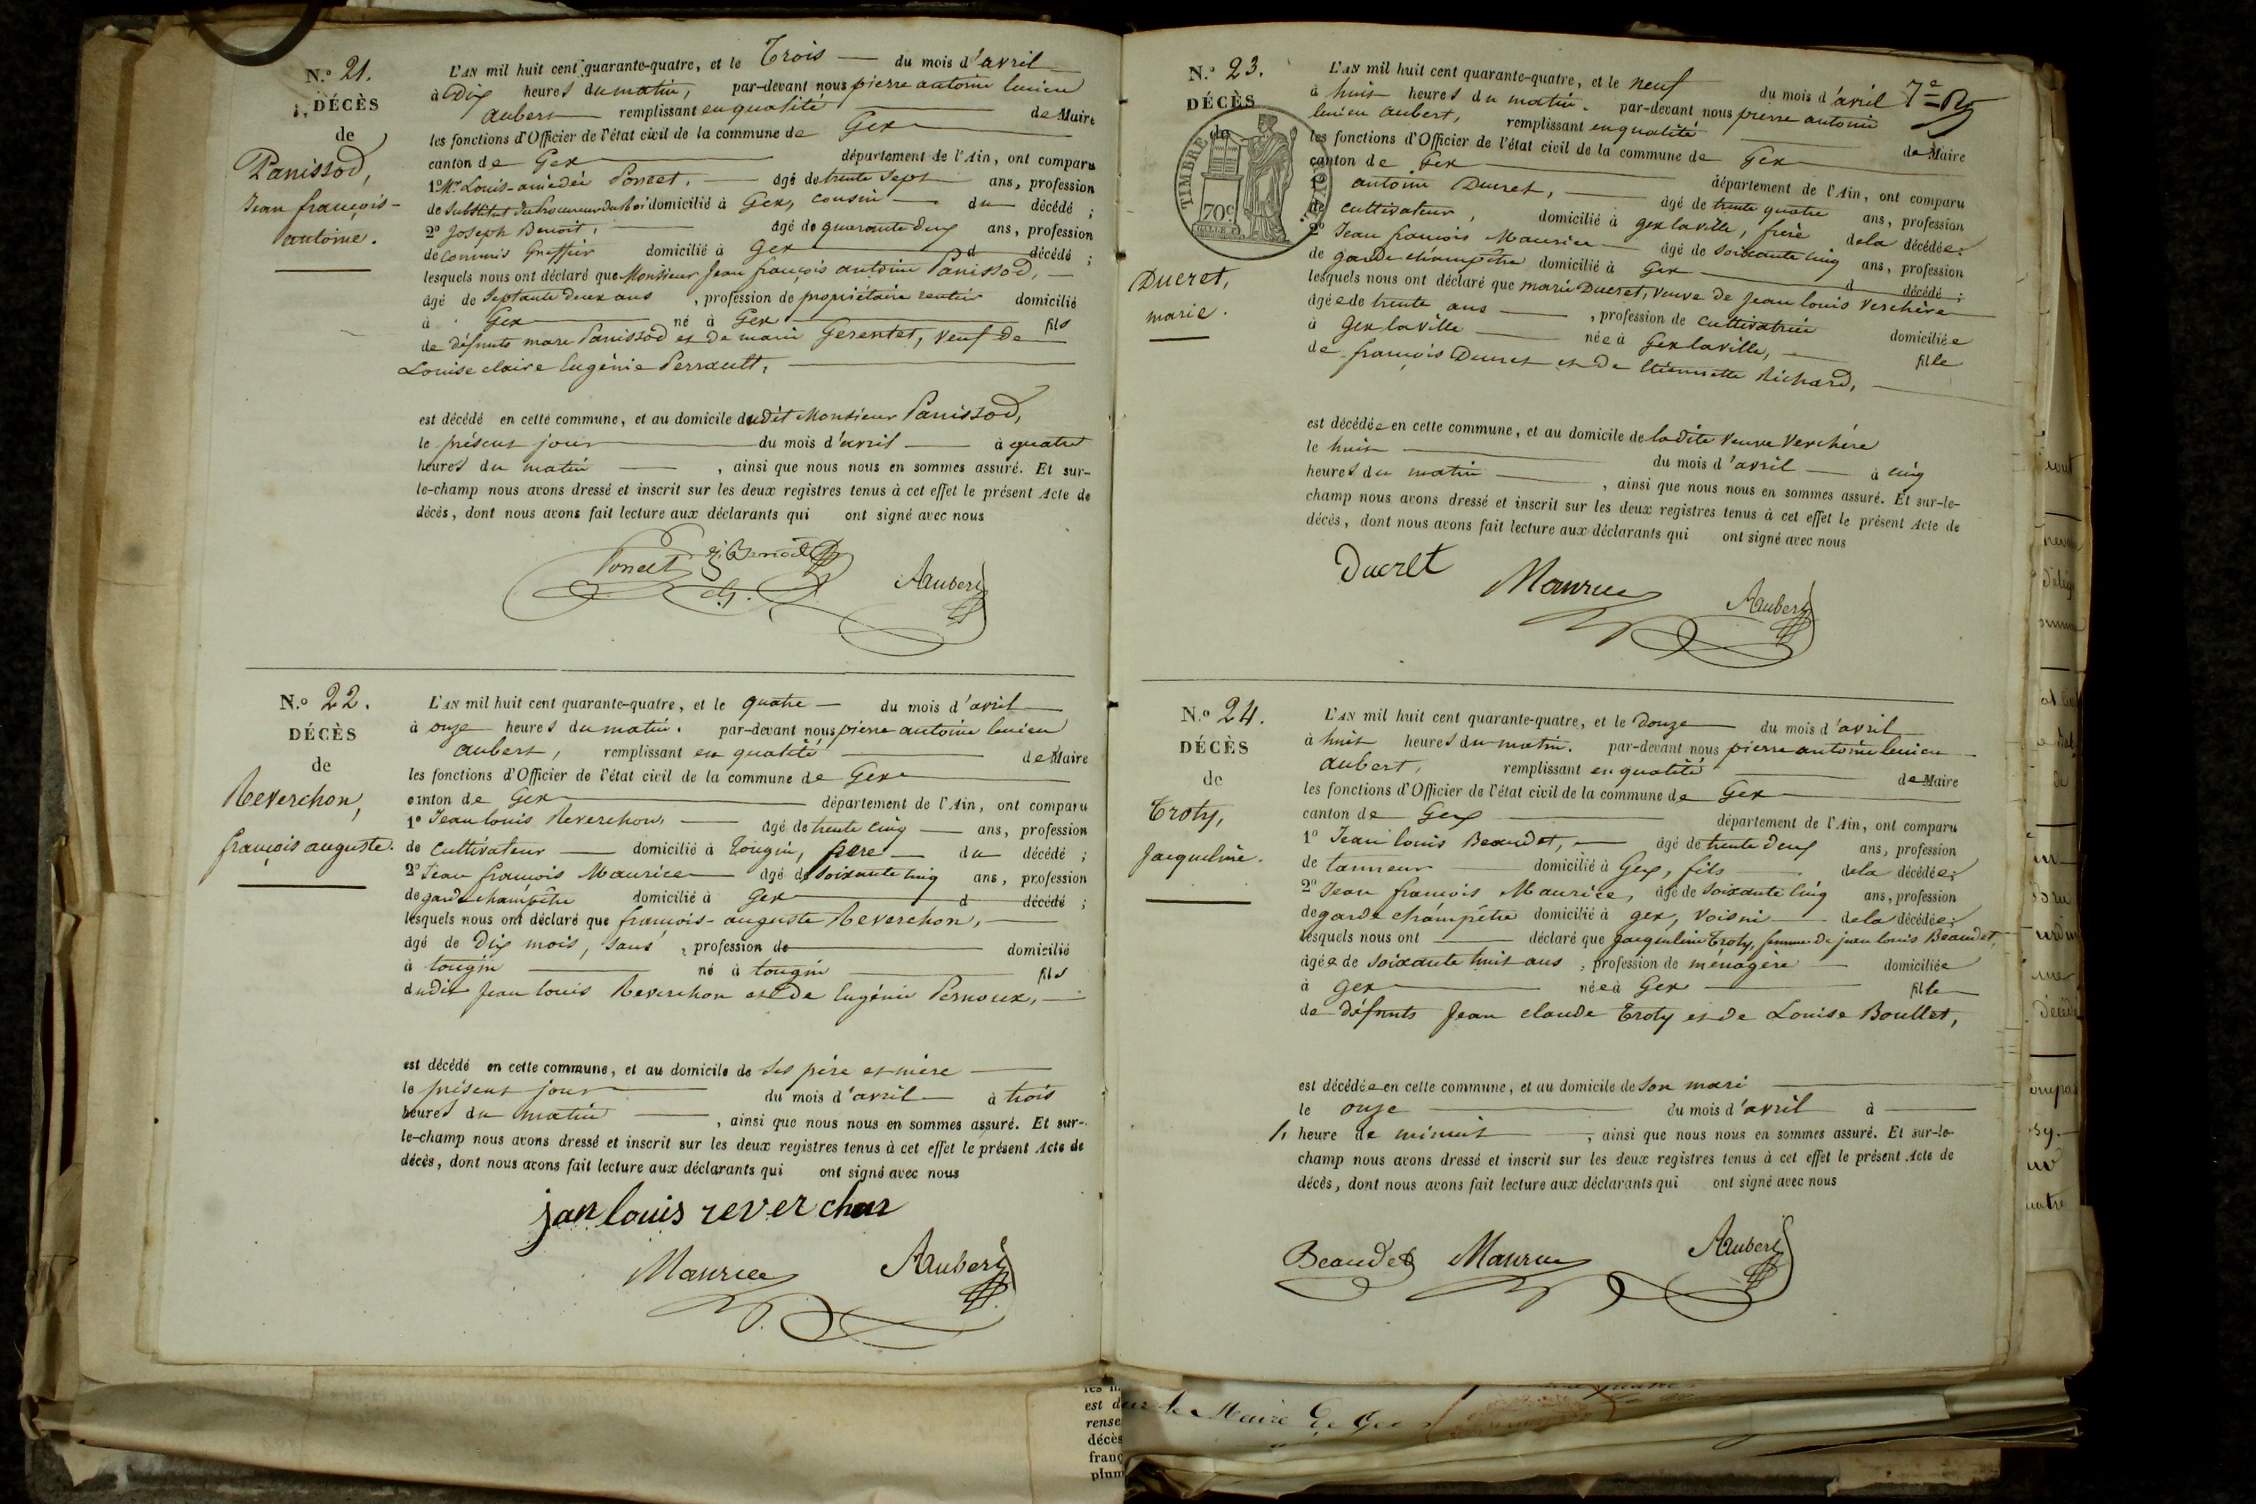 N.º 21.
DÉCÈS
de
Panissod,
Jean françois-
antoine.
L'AN mil huit cent quarante-quatre, et le Trois du mois d'avril
à Dix heures du matin, par-devant nous pierre antoine lucien
aubert remplissant en qualité de Maire
les fonctions d'Officier de l'état civil de la commune de Gex
canton de Gex département de l'Ain, ont comparu
1º Mr. Louis-amédée Poncet, âgé de trente sept ans, profession
de Substitut du Procureur du Roi domicilié à Gex, cousin du décédé ;
2º Joseph Benoit, âgé de quarante deux ans, profession
de commis Greffier domicilié à Gex d décédé ;
lesquels nous ont déclaré que Monsieur Jean françois antoine Panissod,
âgé de septante deux ans , profession de propriétaire rentier domicilié
à Gex né à Gex fils
de défunts marc Panissod et de marie Gerentet, veuf de
Louise claire Eugénie Perrault,
est décédé en cette commune, et au domicile dudit Monsieur Panissod,
le présent jour du mois d'avril à quatre
heures du matin , ainsi que nous nous en sommes assuré. Et sur-
le-champ nous avons dressé et inscrit sur les deux registres tenus à cet effet le présent Acte de
décès, dont nous avons fait lecture aux déclarants qui ont signé avec nous
Poncet J. Benoit
Aubert
N.º 22.
DÉCÈS
de
Reverchon,
françois auguste.
L'AN mil huit cent quarante-quatre, et le quatre du mois d'avril
à onze heures du matin. par-devant nous pierre antoine lucien
aubert, remplissant en qualité de Maire
les fonctions d'Officier de l'état civil de la commune de Gex
canton de Gex département de l'Ain, ont comparu
1º Jean louis Reverchon, âgé de trente cinq ans, profession
de cultivateur domicilié à Tougin, père du décédé ;
2º Jean françois Maurice âgé de soixante cinq ans, profession
de garde champêtre domicilié à Gex d décédé ;
lesquels nous ont déclaré que françois-auguste Reverchon,
âgé de Dix mois, sans , profession de domicilié
à tougin né à tougin fils
dudit Jean louis Reverchon et de Eugénie Pernoux,
est décédé en cette commune, et au domicile de ses père et mère
le présent jour du mois d'avril à trois
heures du matin , ainsi que nous nous en sommes assuré. Et sur-
le-champ nous avons dressé et inscrit sur les deux registres tenus à cet effet le présent Acte de
décès, dont nous avons fait lecture aux déclarants qui ont signé avec nous
jan louis reverchon
Maurice Aubert
N.º 23.
DÉCÈS
de
TIMBRE ROYAL
70 c
Ducret,
marie.
7e
L'AN mil huit cent quarante-quatre, et le neuf du mois d'avril
à huit heures du matin. par-devant nous pierre antoine
lucien aubert, remplissant en qualité de Maire
les fonctions d'Officier de l'état civil de la commune de Gex
canton de Gex département de l'Ain, ont comparu
1º antoine Ducret, âgé de trente quatre ans, profession
de cultivateur, domicilié à gex la ville, frère de la décédée ;
2º Jean françois Maurice âgé de soixante cinq ans, profession
de garde champêtre domicilié à Gex d décédé ;
lesquels nous ont déclaré que marie Ducret, veuve de Jean louis Verchère
âgée de trente ans , profession de cultivatrice domiciliée
à Gex la ville née à Gex la ville, fille
de françois Ducret et de Etiennette Richard,
est décédée en cette commune, et au domicile de ladite veuve Verchère
le huit du mois d'avril à cinq
heures du matin , ainsi que nous nous en sommes assuré. Et sur-le-
champ nous avons dressé et inscrit sur les deux registres tenus à cet effet le présent Acte de
décès, dont nous avons fait lecture aux déclarants qui ont signé avec nous
Ducret Maurice Aubert
N.º 24.
DÉCÈS
de
Troty,
Jacqueline.
L'AN mil huit cent quarante-quatre, et le Douze du mois d'avril
à huit heures du matin. par-devant nous pierre antoine lucien
aubert, remplissant en qualité de Maire
les fonctions d'Officier de l'état civil de la commune de Gex
canton de Gex département de l'Ain, ont comparu
1º Jean louis Beaudet, âgé de trente deux ans, profession
de tanneur domicilié à Gex, fils de la décédée ;
2º Jean françois Maurice, âgé de soixante cinq ans, profession
de garde champêtre domicilié à gex, voisin de la décédée ;
lesquels nous ont déclaré que Jacqueline Troty, femme de jean louis Beaudet,
âgée de soixante huit ans , profession de ménagère domiciliée
à gex née à Gex fille
de défunts Jean claude Troty et de Louise Boullet,
est décédée en cette commune, et au domicile de son mari
le onze du mois d'avril à
heure de minuit , ainsi que nous nous en sommes assuré. Et sur-le-
champ nous avons dressé et inscrit sur les deux registres tenus à cet effet le présent Acte de
décès, dont nous avons fait lecture aux déclarants qui ont signé avec nous
Beaudet Maurice Aubert
le Maire de Gex